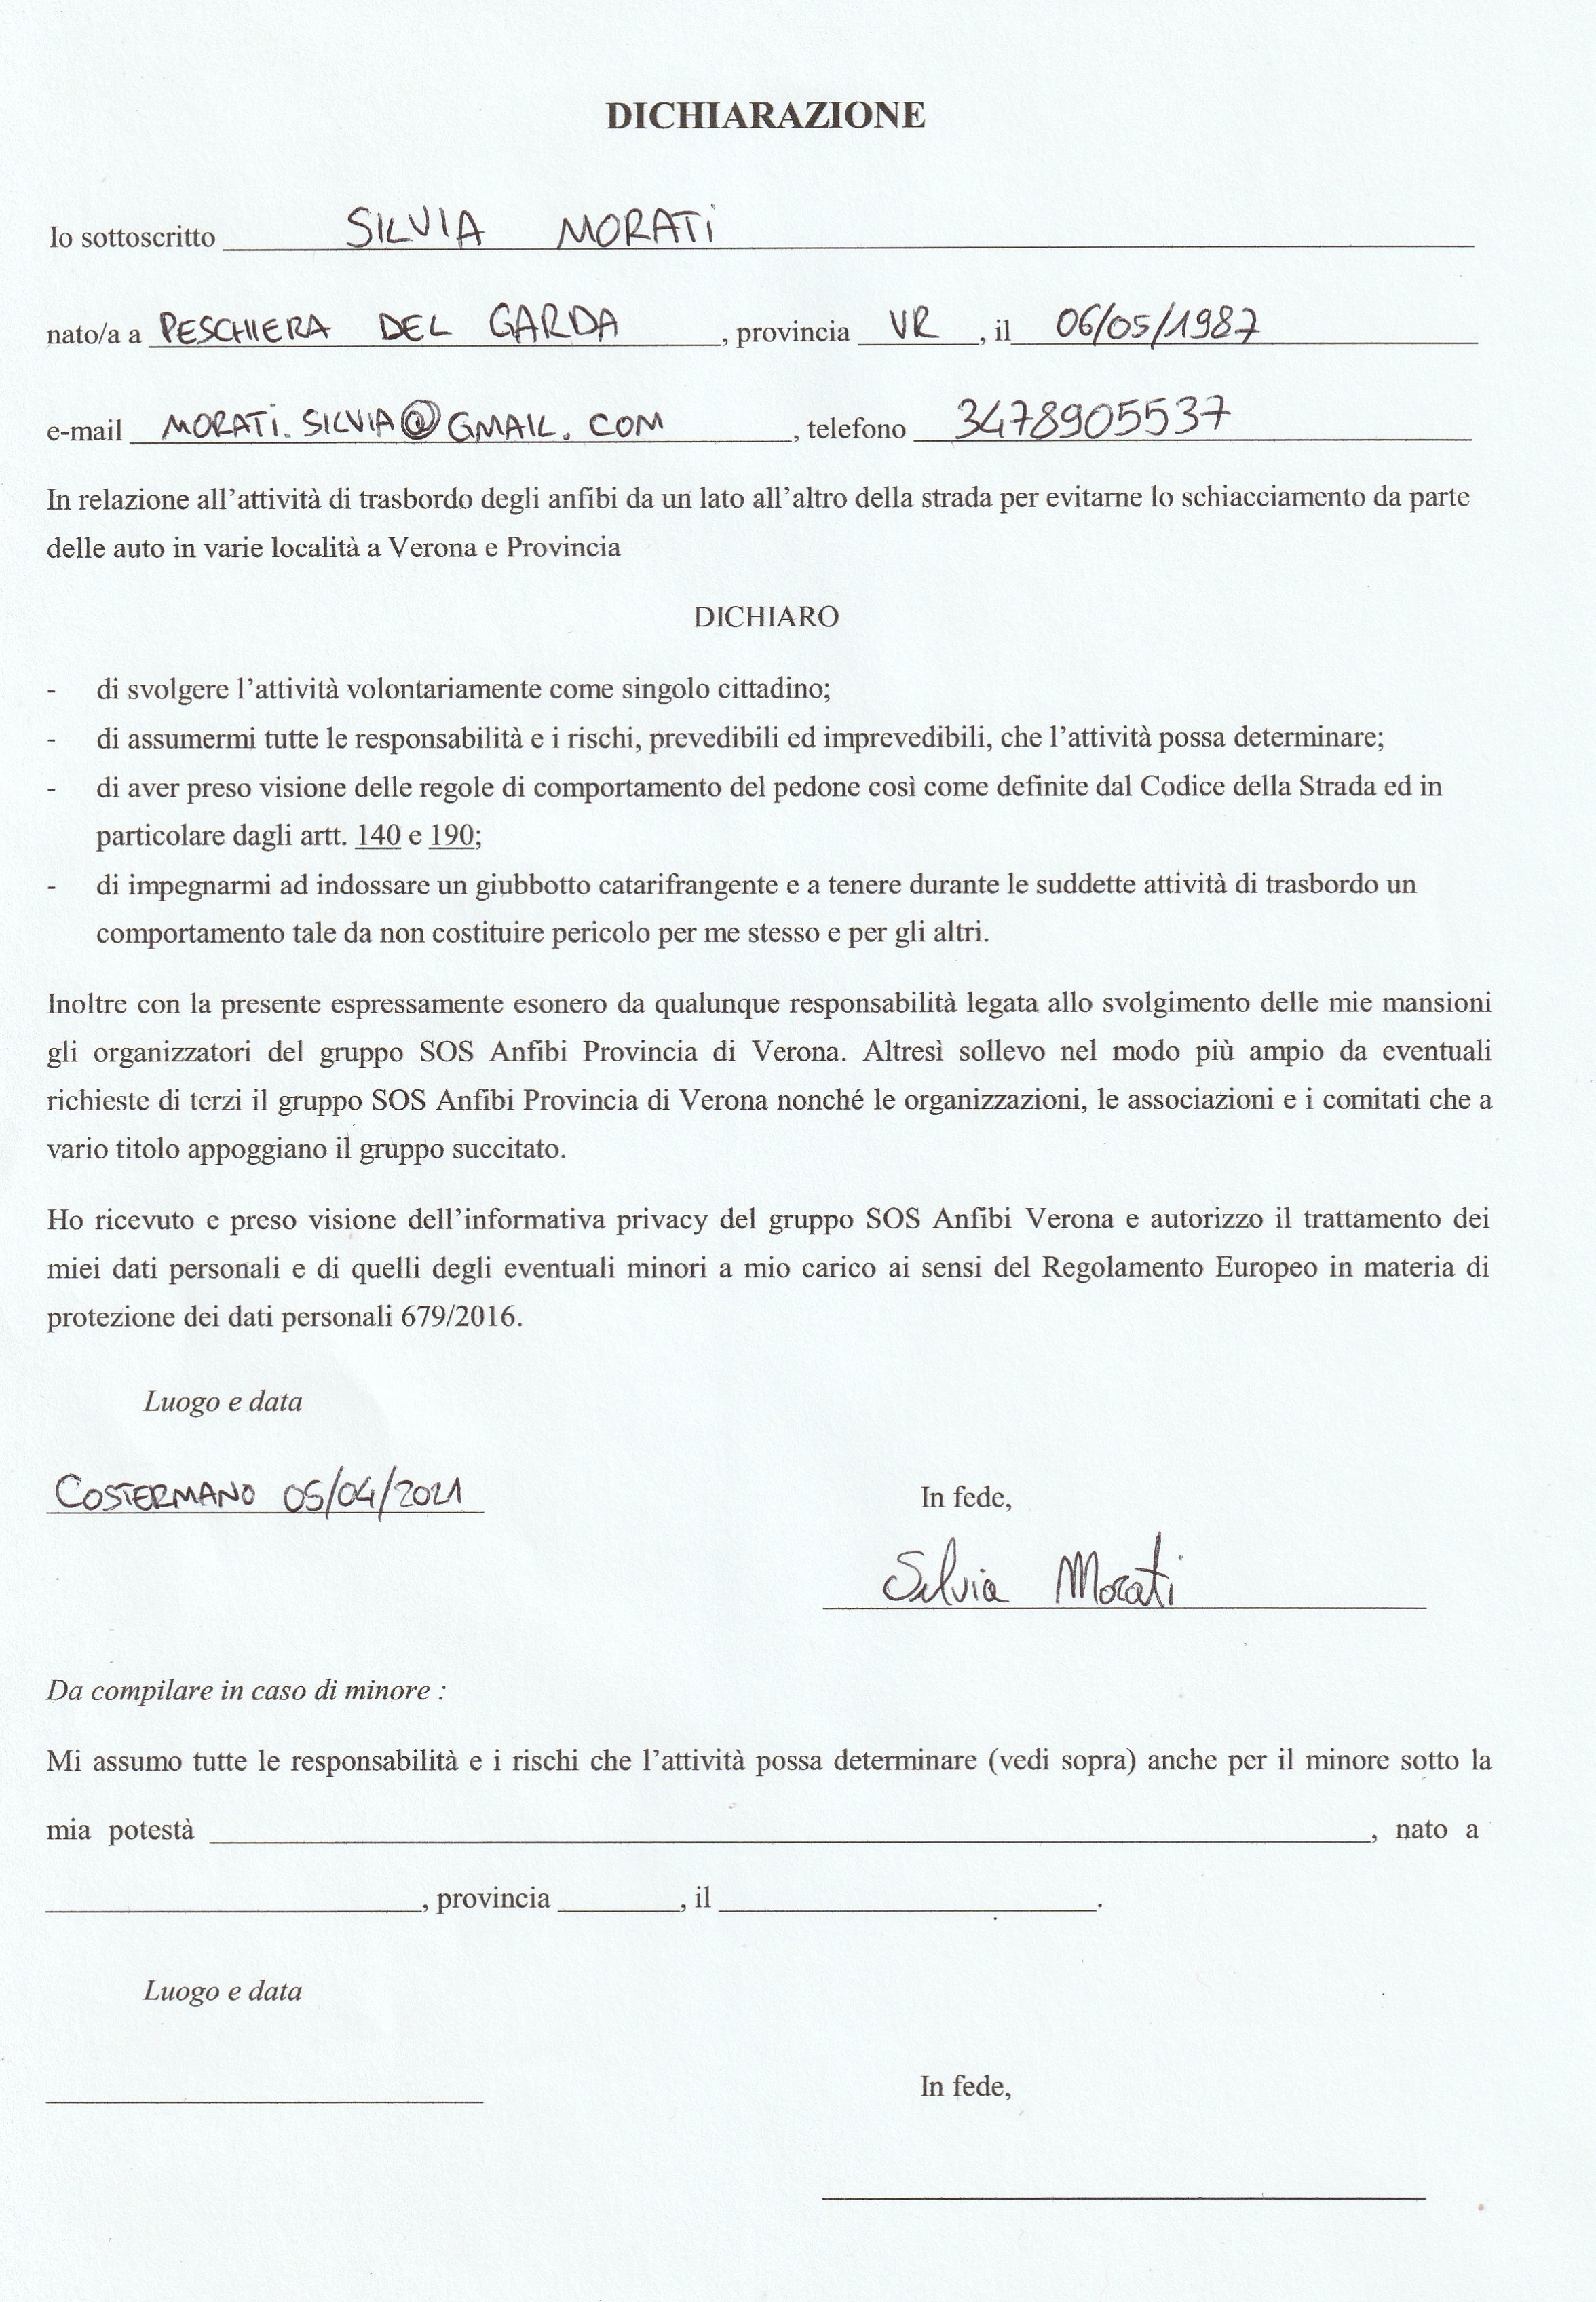 DICHIARAZIONE
Io sottoscritto SILVIA MORATI
nato/a a PESCHIERA DEL GARDA, provincia VR, il 06/05/1987
e-mail MORATI.SILVIA@GMAIL.COM, telefono 3478905537
In relazione all'attività di trasbordo degli anfibi da un lato all'altro della strada per evitarne lo schiacciamento da parte
delle auto in varie località a Verona e Provincia
DICHIARO
- di svolgere l'attività volontariamente come singolo cittadino;
- di assumermi tutte le responsabilità e i rischi, prevedibili ed imprevedibili, che l'attività possa determinare;
- di aver preso visione delle regole di comportamento del pedone così come definite dal Codice della Strada ed in
particolare dagli artt. 140 e 190;
- di impegnarmi ad indossare un giubbotto catarifrangente e a tenere durante le suddette attività di trasbordo un
comportamento tale da non costituire pericolo per me stesso e per gli altri.
Inoltre con la presente espressamente esonero da qualunque responsabilità legata allo svolgimento delle mie mansioni
gli organizzatori del gruppo SOS Anfibi Provincia di Verona. Altresì sollevo nel modo più ampio da eventuali
richieste di terzi il gruppo SOS Anfibi Provincia di Verona nonché le organizzazioni, le associazioni e i comitati che a
vario titolo appoggiano il gruppo succitato.
Ho ricevuto e preso visione dell'informativa privacy del gruppo SOS Anfibi Verona e autorizzo il trattamento dei
miei dati personali e di quelli degli eventuali minori a mio carico ai sensi del Regolamento Europeo in materia di
protezione dei dati personali 679/2016.
Luogo e data
COSTERMANO 05/04/2021
In fede,
Silvia Morati
Da compilare in caso di minore :
Mi assumo tutte le responsabilità e i rischi che l'attività possa determinare (vedi sopra) anche per il minore sotto la
mia potestà ________, nato a
________, provincia ________, il ________.
Luogo e data
In fede,